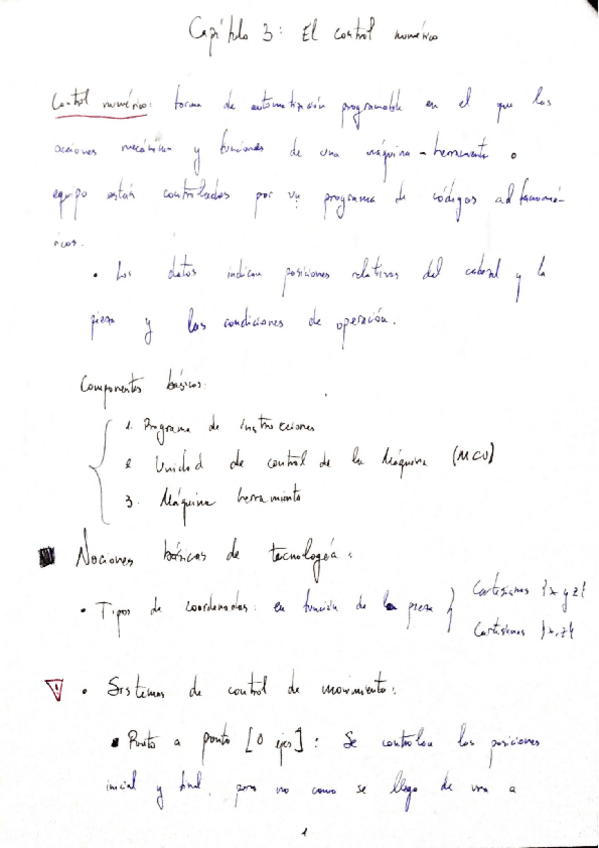 Capítulo 3: El control numérico
Control numérico: forma de automatización programable en el que las
acciones mecánicas y funciones de una máquina-herramienta o
equipo están controlados por un programa de códigos alfanumé-
ricos.
• Los datos indican posiciones relativas del cabezal y la
pieza y las condiciones de operación.
Componentes básicos:
1. Programa de instrucciones
2 Unidad de control de la Máquina (MCU)
3. Máquina herramienta
Nociones básicas de tecnología:
• Tipos de coordenadas: en función de la pieza } Cartesianas {x y z}
Cartesianas {x, z}
• Sistemas de control de movimiento:
Punto a punto [0 ejes]: Se controlan las posiciones
inicial y final, pero no como se llega de una a
1